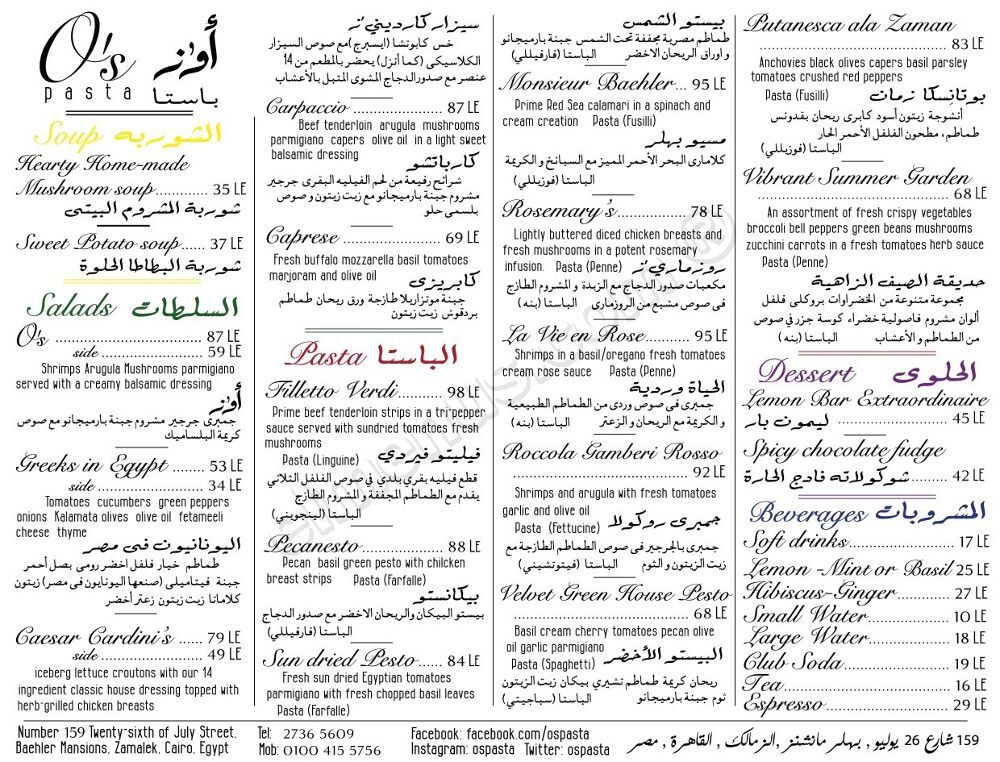 O's
pasta
أوز
باستا
Soup الشوربه
Hearty Home-made
Mushroom soup............ 35 LE
شوربة المشروم البيتى
Sweet Potato soup...... 37 LE
شوربة البطاطا الحلوة
Salads السلطات
O's ................................ 87 LE
side ......................... 59 LE
Shrimps Arugula Mushrooms parmigiano
served with a creamy balsamic dressing
أوزز
جمبرى جرجير مشروم جبنة بارميجانو مع صوص
كريمة البلساميك
Greeks in Egypt ........ 53 LE
side ......................... 34 LE
Tomatoes cucumbers green peppers
onions Kalamata olives olive oil fetameeli
cheese thyme
اليونانيون فى مصر
طماطم خيار فلفل اخضر رومى بصل أحمر
جبنة فيتاميلى (صنعها اليونايون فى مصر) زيتون
كلاماتا زيت زيتون زعتر أخضر
Caesar Cardini's ....... 79 LE
side ......................... 49 LE
iceberg lettuce croutons with our 14
ingredient classic house dressing topped with
herb-grilled chicken breasts
سيزار كاردينى'ز
خس كابوتشا (ايسبرج)مع صوص السيزار
الكلاسيكى (كما أنزل) يحضر بالمطعم من 14
عنصر مع صدور الدجاج المشوى المتبل بالأعشاب
Carpaccio ................... 87 LE
Beef tenderloin arugula mushrooms
parmigiano capers olive oil in a light sweet
balsamic dressing
كارباتشو
شرائح رفيعة من لحم الفيليه البقرى جرجير
مشروم جبنة بارميجانو مع زيت زيتون و صوص
بلسمى حلو
Caprese ...................... 69 LE
Fresh buffalo mozzarella basil tomatoes
marjoram and olive oil
كابريزى
جبنة موتزاريلا طازجة ورق ريحان طماطم
بردقوش زيت زيتون
Pasta الباستا
Filletto Verdi............... 98 LE
Prime beef tenderloin strips in a tri-pepper
sauce served with sundried tomatoes fresh
mushrooms
Pasta (Linguine) فيليتو فيردي
قطع فيليه بقري بلدي في صوص الفلفل الثلاثي
يقدم مع الطماطم المجففة و المشروم الطازج
الباستا (لينجويني)
Pecanesto ..................... 88 LE
Pecan basil green pesto with chilcken
breast strips Pasta (Farfalle)
بيكانستو
بيستو البيكان والريحان الاخضر مع صدور الدجاج
الباستا (فارفيللي)
Sun dried Pesto...... 84 LE
Fresh sun dried Egyptian tomatoes
parmigiano with fresh chopped basil leaves
Pasta (Farfalle)
بيستو الشمس
طماطم مصرية مجففة تحت الشمس جبنة بارميجانو
و اوراق الريحان الاخضر الباستا (فارفيللي)
Monsieur Baehler... 95 LE
Prime Red Sea calamari in a spinach and
cream creation Pasta (Fusilli)
مسيو بهلر
كلامارى البحر الأحمر المميز مع السبانخ و الكريمة
الباستا (فوزيللي)
Rosemary's.................. 78 LE
Lightly buttured diced chicken breasts and
fresh mushrooms in a potent rosemary
infusion. Pasta (Penne) روزماري'ز
مكعبات صدور الدجاج مع الزبدة و المشروم الطازج
فى صوص مشبع من الروزمارى الباستا (بنه)
La Vie en Rose............ 95 LE
Shrimps in a basil/oregano fresh tomatoes
cream rose sauce Pasta (Penne)
الحياة وردية
جمبرى فى صوص وردى من الطماطم الطبيعية
و الكريمة مع الريحان و الزعتر الباستا (بنه)
Roccola Gamberi Rosso
........................................ 92 LE
Shrimps and arugula with fresh tomatoes
garlic and olive oil
Pasta (Fettucine) جمبرى روكولا
جمبرى بالجرجير فى صوص الطماطم الطازجة مع
زيت الزيتون و الثوم الباستا (فيتوتشيني)
Velvet Green House Pesto
........................................ 68 LE
Basil cream cherry tomatoes pecan olive
oil garlic parmigiano
Pasta (Spaghetti) البيستو الأخضر
ريحان كريمة طماطم تشيري بيكان زيت الزيتون
ثوم جبنة بارميجانو الباستا (سباجيتي)
Putanesca ala Zaman
........................................ 83 LE
Anchovies black olives capers basil parsley
tomatoes crushed red peppers
Pasta (Fusilli) بوتانسكا زمان
أنشوجة زيتون أسود كابرى ريحان بقدونس
طماطم، مطحون الفلفل الأحمر الحار
الباستا (فوزيللي)
Vibrant Summer Garden
........................................ 68 LE
An assortment of fresh crispy vegetables
broccoli bell peppers green beans mushrooms
zucchini carrots in a fresh tomatoes herb sauce
Pasta (Penne)
حديقة الصيف الزاهية
مجموعة متنوعة من الخضراوات بروكلى فلفل
ألوان مشروم فاصولية خضراء كوسة جزر في صوص
من الطماطم و الأعشاب الباستا (بنه)
Dessert الحلوى
Lemon Bar Extraordinaire
ليمون بار .................... 45 LE
Spicy chocolate fudge
شوكولاته فادج الحارة ........ 42 LE
Beverages المشروبات
Soft drinks..................... 17 LE
Lemon -Mint or Basil 25 LE
Hibiscus-Ginger........... 27 LE
Small Water................. 10 LE
Large Water................. 18 LE
Club Soda..................... 19 LE
Tea................................ 16 LE
Espresso ....................... 29 LE
Number 159 Twenty-sixth of July Street,
Baehler Mansions, Zamalek, Cairo, Egypt
Tel: 2736 5609
Mob: 0100 415 5756
Facebook: facebook.com/ospasta
Instagram: ospasta Twitter: ospasta
159 شارع 26 يوليو, بهلر مانشنز, الزمالك, القاهرة, مصر